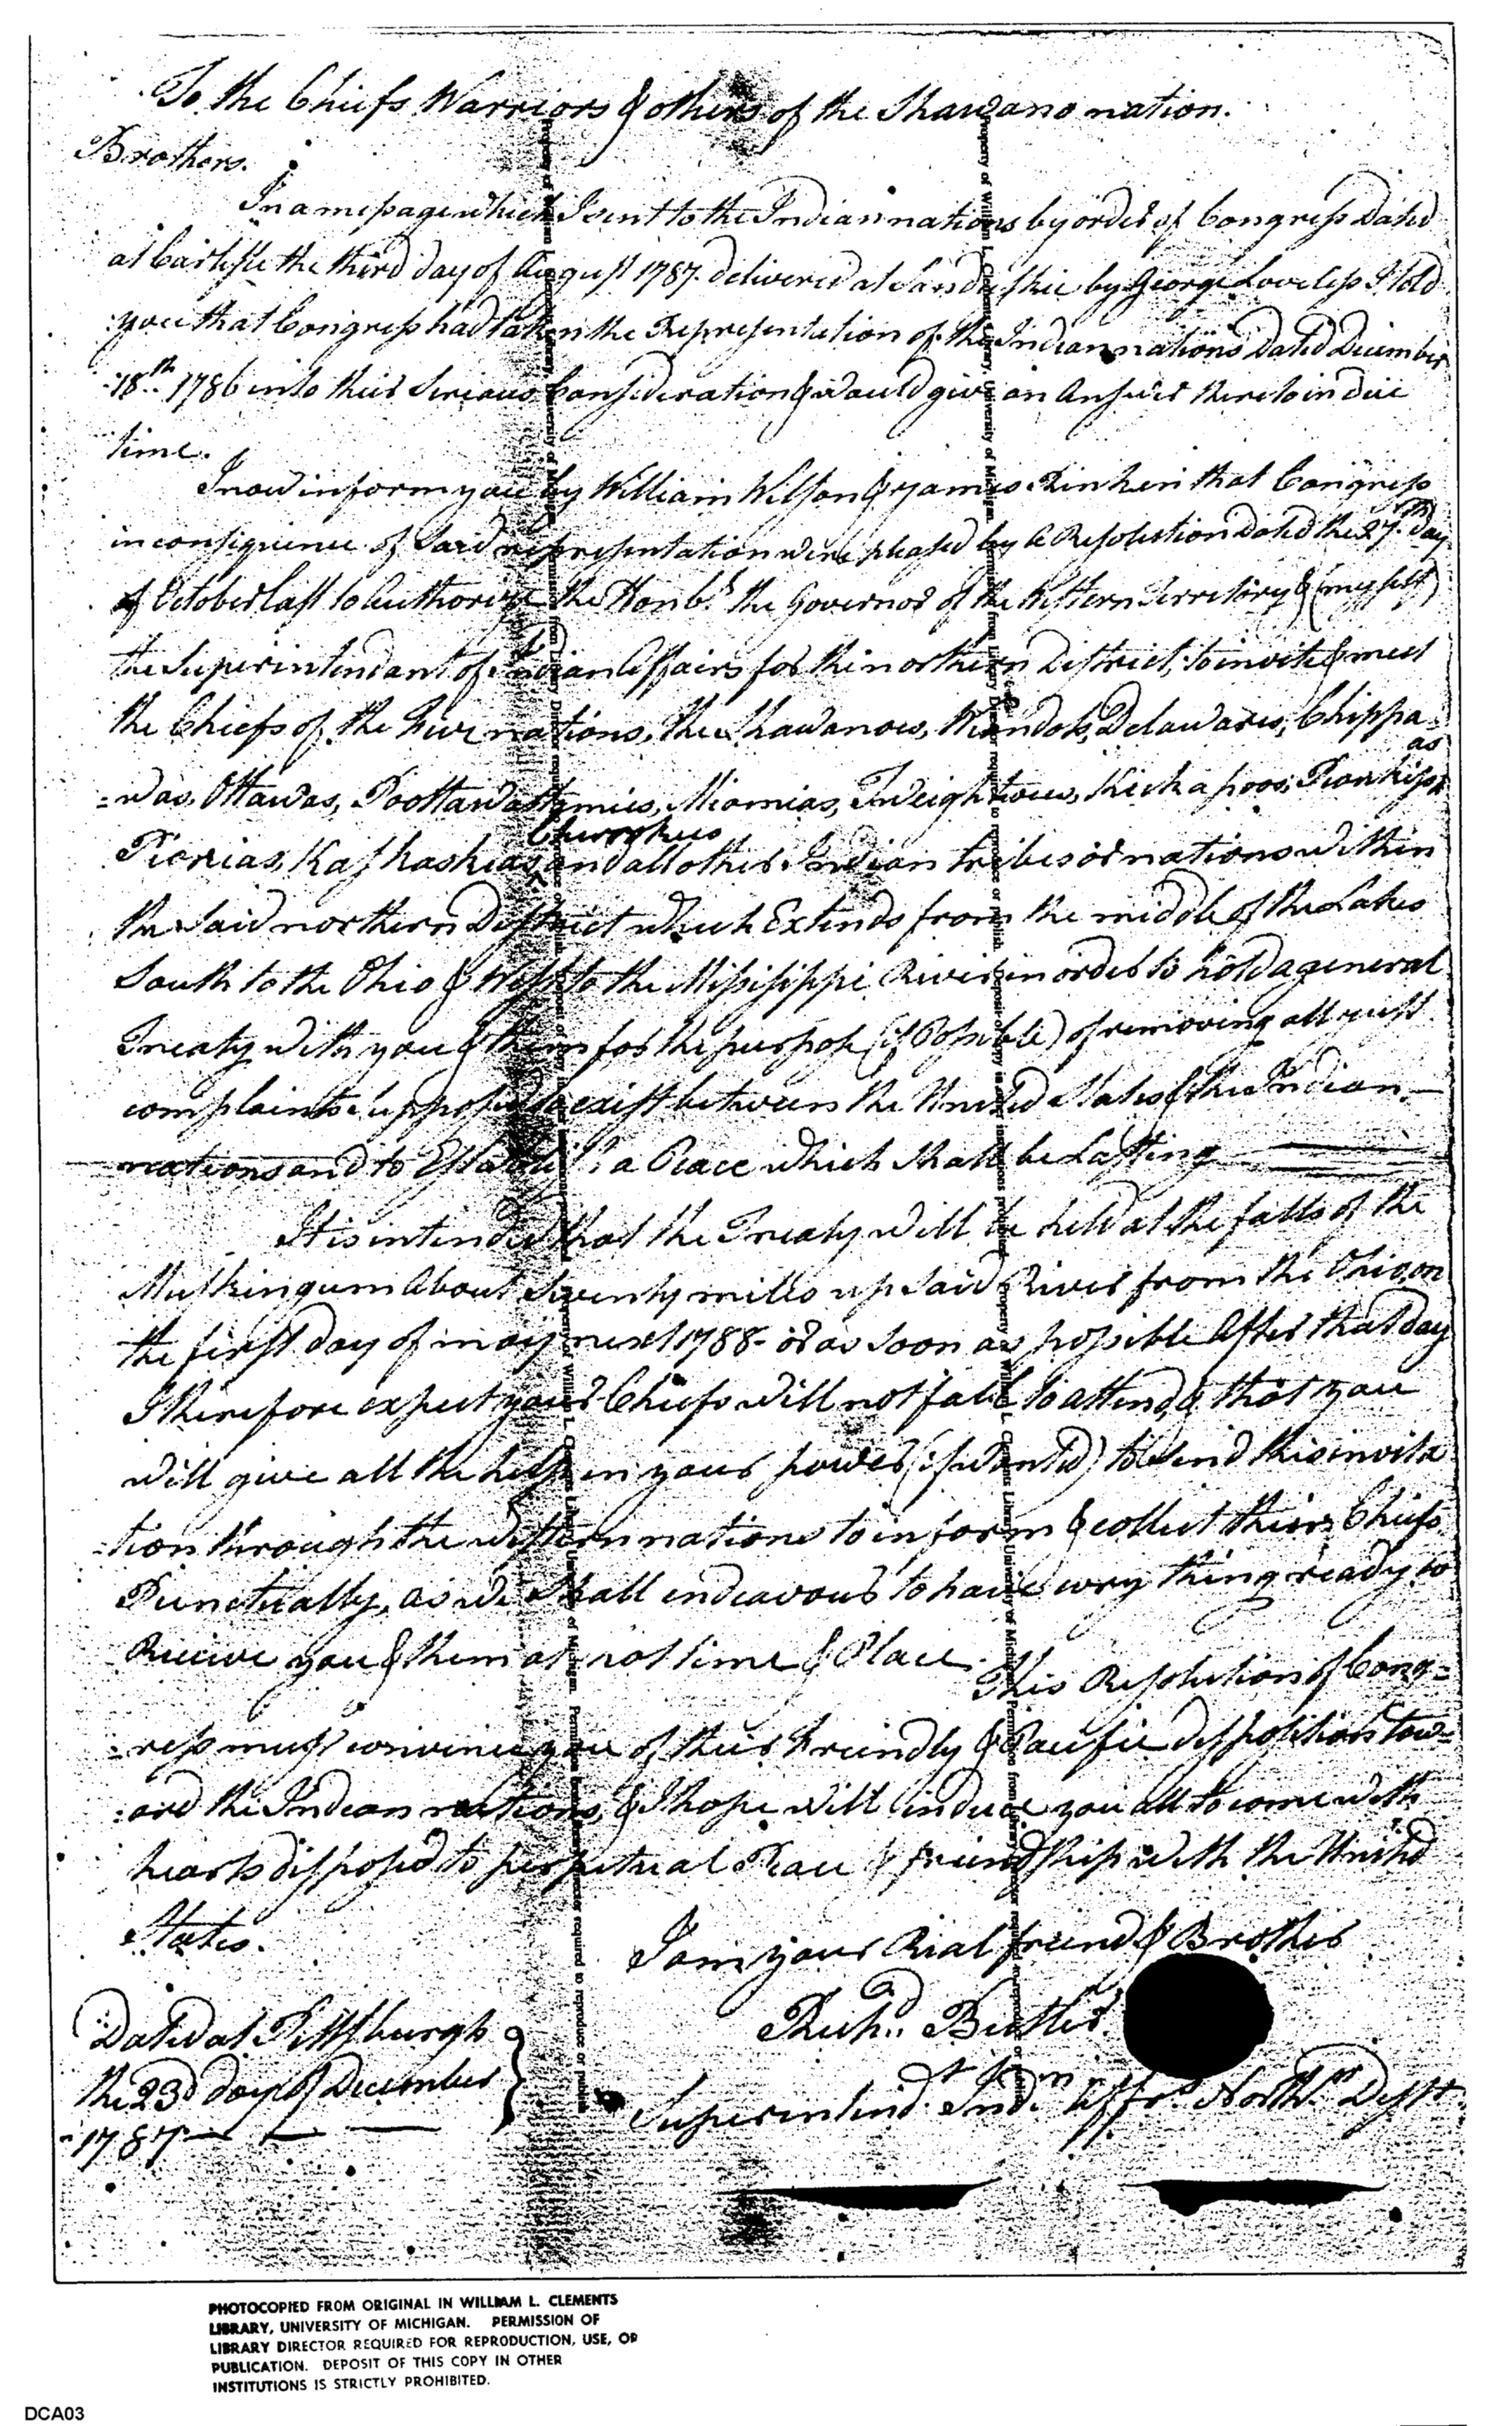 To the Chiefs Warriors & others of the Shawano nation.
Brothers.
In a message which I sent to the Indian nations by order of Congress Dated
at Carlisle the third day of August 1787. delivered at Sanduskie by George Loveless I told
you that Congress had taken the Representation of the Indian nations Dated December
18th. 1786 into their Serious Consideration & would give an Answer thereto in due
time.
I now inform you by William Wilson & James Rinken that Congress
in consequence of said representation were pleased by a Resolution Dated the 27th. day
of October last to Authorize the Honbl. the Governor of the Western Territory & (my self)
the Superintendant of Indian Affairs for the northern District, to invite & meet
the Chiefs of the Five nations, the Shawanoes, Wiandots, Delawares, Chippa=
=was, Ottawas, Poottawattymies, Miamias, Tweightwees, Kickapoos, Piankishas
Piorias, Kaskaskias, Cherokees and all other Indian tribes or nations within
the said northern District which Extends from the middle of the Lakes
South to the Ohio & West to the Missisippi River in order to hold a general
Treaty with you & them for the purpose (if Possible) of removing all just
complaints supposed to exist between the United States & the Indian
nations and to Establish a Peace which shall be Lasting
It is intended that the Treaty will be held at the falls of the
Muskingum About Seventy miles up said River from the Ohio, on
the first day of may next 1788- or as soon as possible After that day
I therefore expect your Chiefs will not fail to attend, & that you
will give all the help in your power (if wanted) to send this invita
=tion through the western nations to inform & collect their Chiefs
Punctually, as we shall endeavour to have every thing ready to
Receive you & them at that time & Place. This Resolution of Cong=
=ress must convince you of their Friendly & Pacific dispositions tow=
=ard the Indian nations, & I hope will induce you all to come with
hearts disposed to perpetual Peace & friendship with the United
States.
I am your Real friend & Brother
Richd. Butler.
Superintendt. Indn. Affrs. Northrn. Distt.
Dated at Pittsburgh
the 23d day of December
1787
PHOTOCOPIED FROM ORIGINAL IN WILLIAM L. CLEMENTS
LIBRARY, UNIVERSITY OF MICHIGAN. PERMISSION OF
LIBRARY DIRECTOR REQUIRED FOR REPRODUCTION, USE, OR
PUBLICATION. DEPOSIT OF THIS COPY IN OTHER
INSTITUTIONS IS STRICTLY PROHIBITED.
DCA03